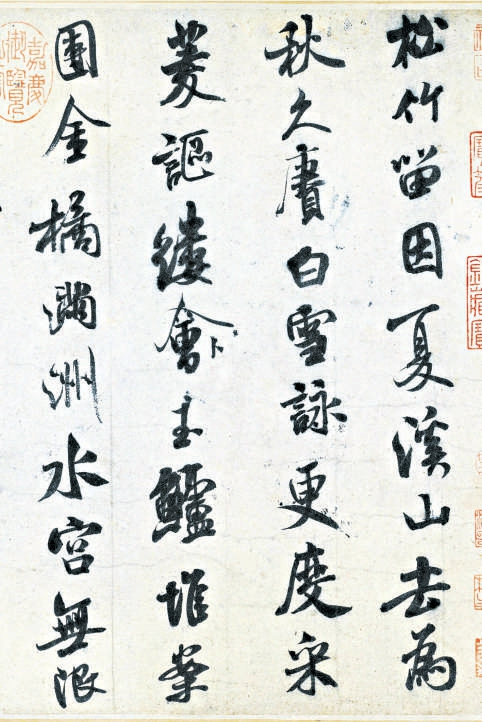 松竹留因夏溪山去為
秋久賡白雪詠更度采
菱謳縷會玉鱸堆案
團金橘滿洲水宮無限
嘉慶
御覽